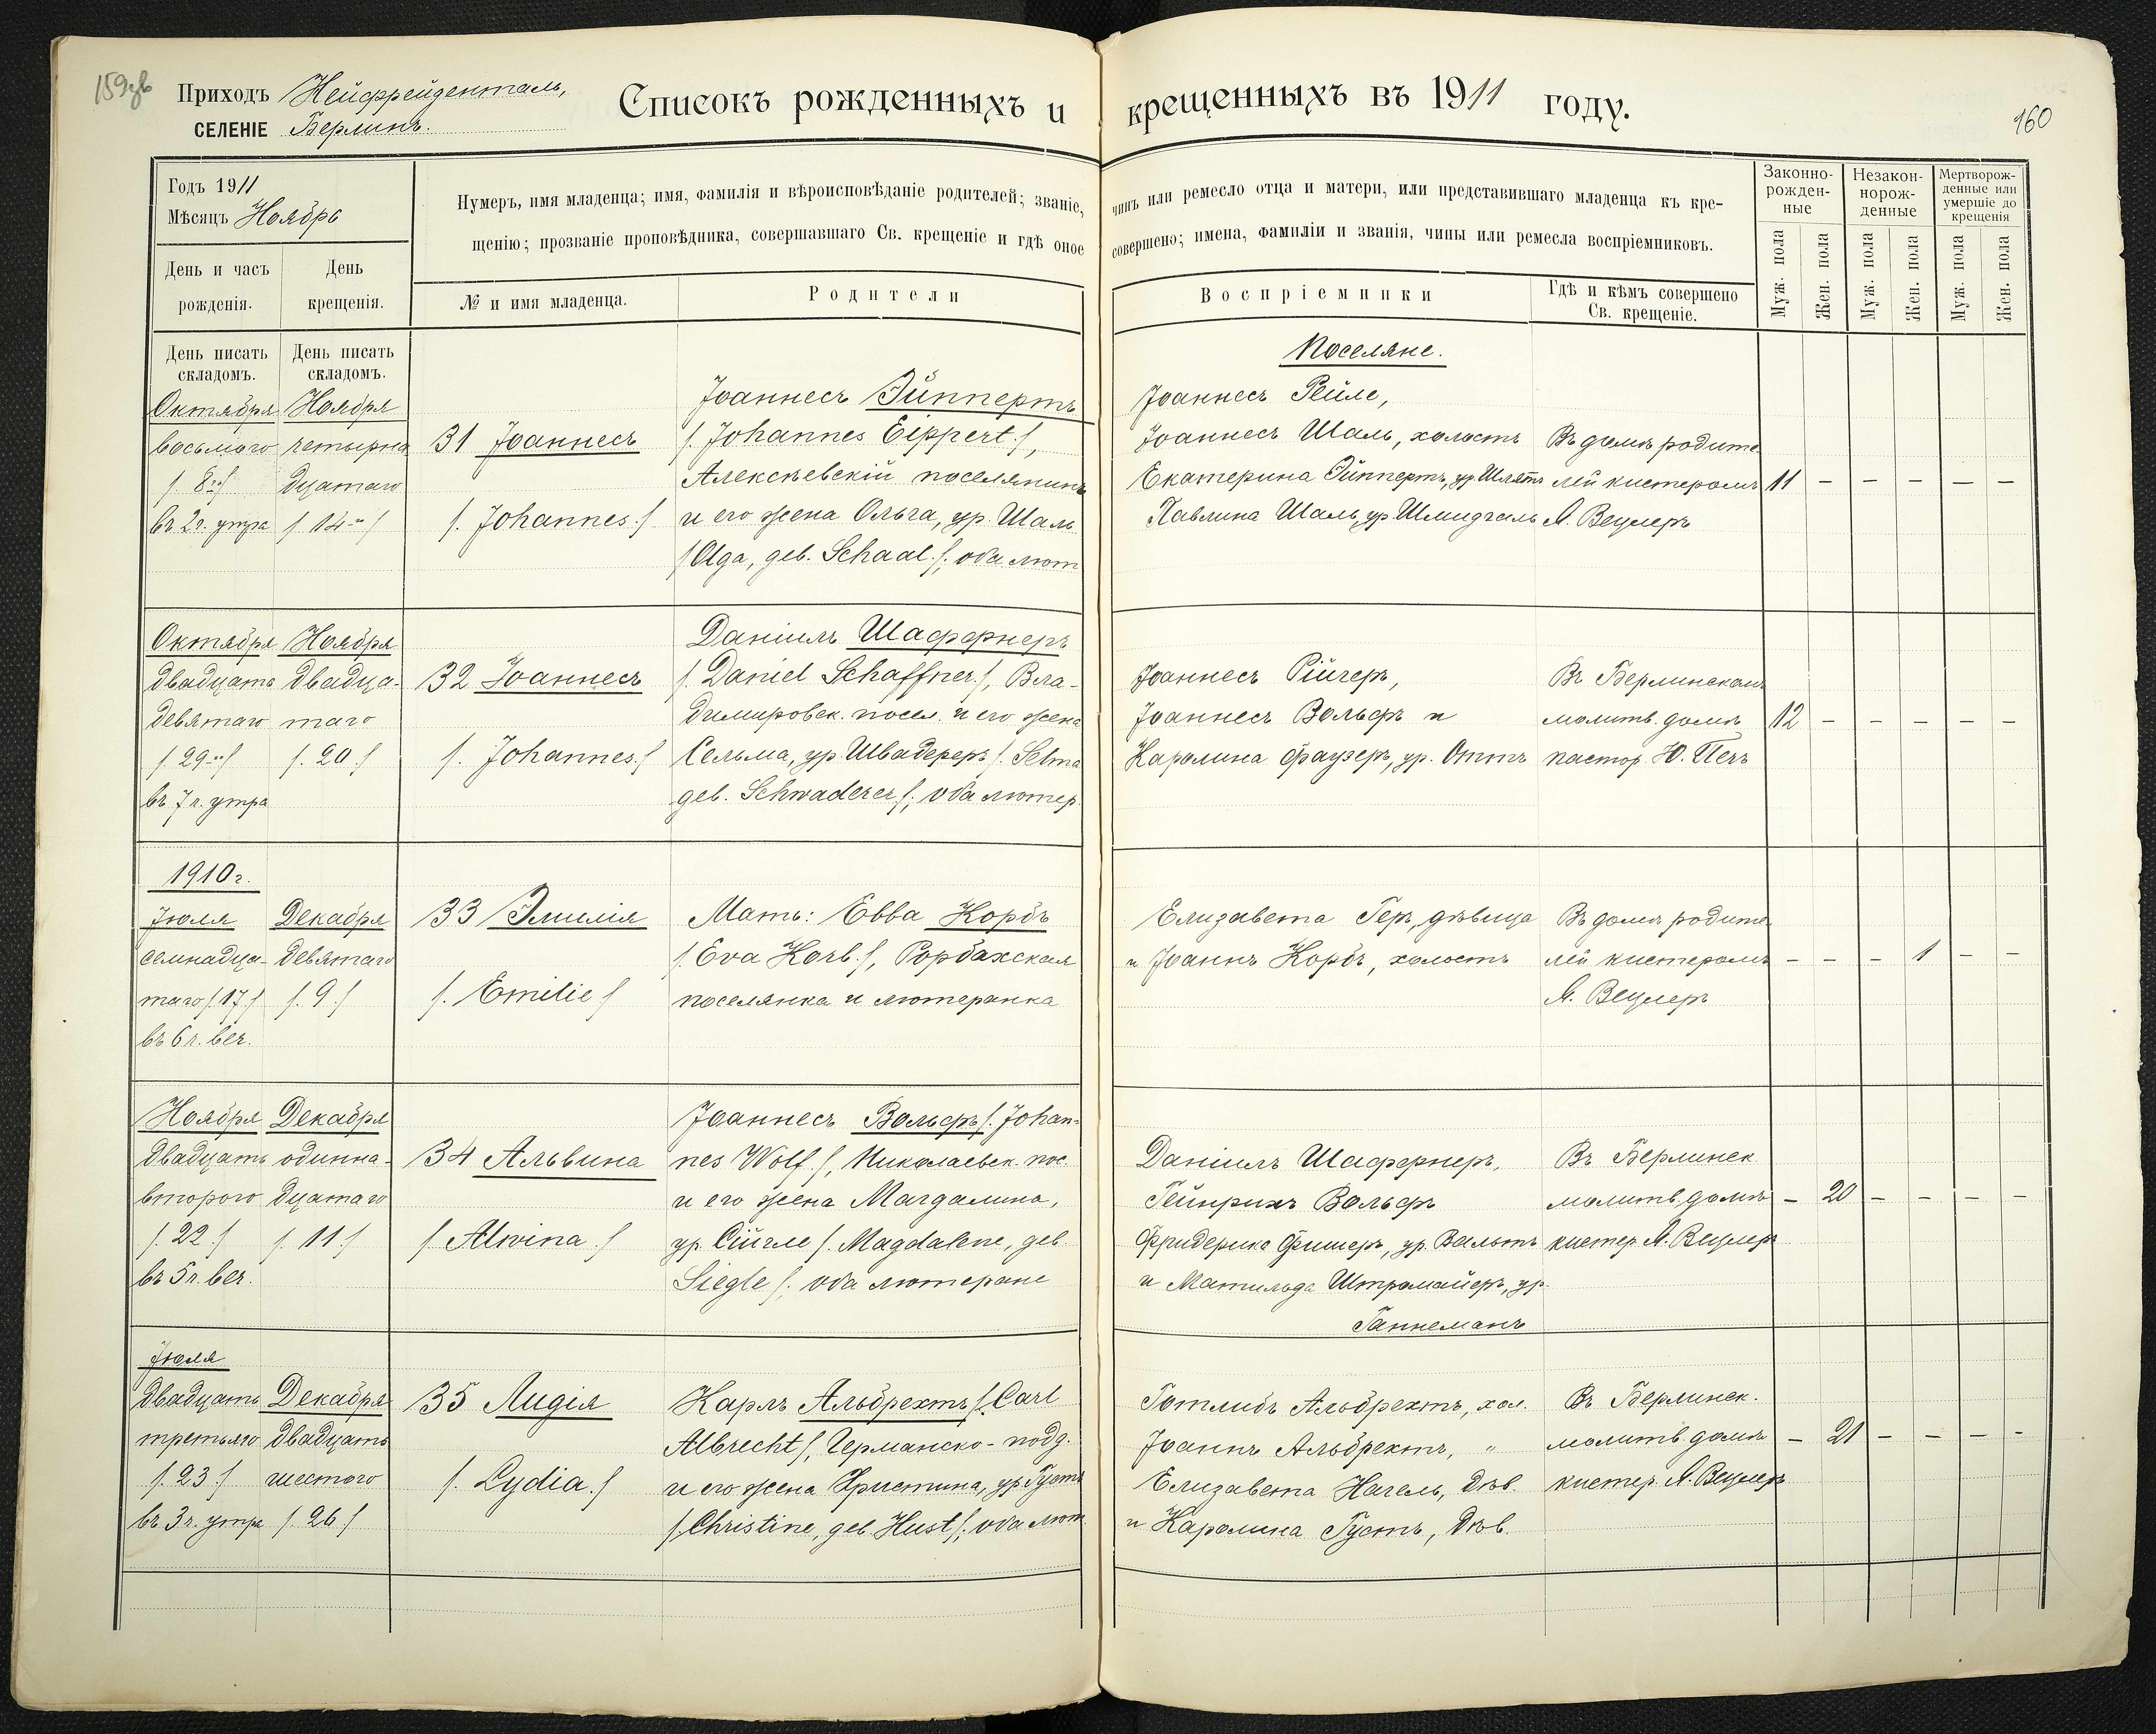 159об
Приходъ Нейфрейденталь,
СЕЛЕНІЕ Берлинъ.
Списокъ рожденныхъ и крещенныхъ въ 1911 году.
160
Годъ 1911
Мѣсяцъ Ноябрь
Нумеръ, имя младенца; имя, фамилія и вѣроисповѣданіе родителей; званіе, чинъ или ремесло отца и матери, или представившаго младенца къ кре-
щенію; прозваніе проповѣдника, совершавшаго Св. крещеніе и гдѣ оное совершено; имена, фамиліи и званія, чины или ремесла воспріемниковъ.
Законно-
рожден-
ные
Незакон-
норож-
денные
Мертворож-
денные или
умершіе до
крещенія
День и часъ
рожденія.
День
крещенія.
№ и имя младенца.
Родители
Воспріемники
Гдѣ и кѣмъ совершено
Св. крещеніе.
Муж. пола
Жен. пола
Муж. пола
Жен. пола
Муж. пола
Жен. пола
День писать
складомъ.
День писать
складомъ.
Поселяне.
Октября
восьмого
/. 8го/
въ 2 ч. утра
Ноября
четырна
дцатаго
/. 14го/
31 Іоаннесъ
/. Johannes./
Іоаннесъ Эйппертъ
/. Johannes Eippert./,
Алексѣевскій поселянинъ
и его жена Ольга, ур. Шаль
/Olga, geb. Schaal./; оба лют
Іоаннесъ Рейле,
Іоаннесъ Шаль, холостъ
Екатерина Эйппертъ, ур.
Павлина Шаль, ур.
Въ домѣ родите
лей кистеромъ
А. Вецлеръ
11 — — — — —
Октября
двадцать
девятаго
/. 29го/
въ 7 ч. утра
Ноября
двадца-
таго
/. 20./
32 Іоаннесъ
/. Johannes./
Даніилъ Шаффнеръ
/. Daniel Schaffner./, Вла-
димировск. посел. и его жена
Сельма, ур. Швадереръ /. Selma
geb. Schwaderer./; оба лютер.
Іоаннесъ Рійгеръ,
Іоаннесъ Вольфъ и
Каролина Фаузеръ, ур. Оттъ
Въ Берлинскомъ
молитв. домѣ
пастор. Ю. Печъ
12 — — — — —
1910 г.
Іюля
семнадца-
таго /. 17./
въ 6 ч. веч.
Декабря
девятаго
/. 9./
33 Эмилія
/. Emilie./
Мать: Евва Корбъ
/. Eva Korb./, Рорбахская
поселянка и лютеранка
Елизавета Геръ, дѣвица
и Іоаннъ Корбъ, холостъ
Въ домѣ родите
лей кистеромъ
А. Вецлеръ
— — — 1 — —
Ноября
двадцать
второго
/. 22./
въ 5 ч. веч.
Декабря
одинна-
дцатаго
/. 11./
34 Альвина
/. Alwina./
Іоаннесъ Вольфъ /. Johan-
nes Wolf./, Николаевск. пос.
и его жена Магдалина,
ур. Сійгле /. Magdalene, geb.
Siegle./; оба лютеране
Даніилъ Шаффнеръ,
Гейнрихъ Вольфъ
Фридерика Фишеръ, ур. Вальтъ
и Матильда Штромайеръ, ур.
Ганнеманъ
Въ Берлинск.
молитв. домѣ
кистер. А. Вецлеръ
— 20 — — — —
Іюля
двадцать
третьяго
/. 23./
въ 3 ч. утра
Декабря
двадцать
шестого
/. 26./
35 Лидія
/. Lydia./
Карлъ Альбрехтъ /. Carl
Albrecht./, Германско-подд.
и его жена Христина, ур. Густъ
/. Christine, geb. Hust./; оба лют.
Готлибъ Альбрехтъ, хол.
Іоаннъ Альбрехтъ, "
Елизавета Нагель, дѣв.
и Каролина Густъ, дѣв.
Въ Берлинск.
молитв. домѣ
кистер. А. Вецлеръ
— 21 — — — —